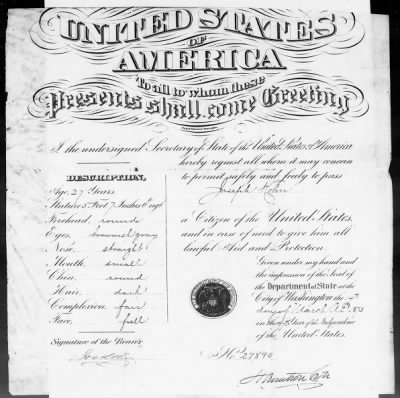 UNITED STATES
OF
AMERICA
To all to whom these
Presents shall come Greeting
I the undersigned Secretary of State of the United States of America
hereby request all whom it may concern
to permit safely and freely to pass
Joseph
a Citizen of the United States
and in case of need to give him all
lawful Aid and Protection.
DESCRIPTION.
Age 27 Years
Stature 5 Feet 7 Inches Engl
Forehead round
Eyes
Nose straight
Mouth small
Chin round
Hair dark
Complexion fair
Face full
Signature of the Bearer
Given under my hand and
the impression of the Seal of
the Department of State at the
City of Washington the
day of March A.D.
in the Year of the Independence
of the United States.
No. 27840